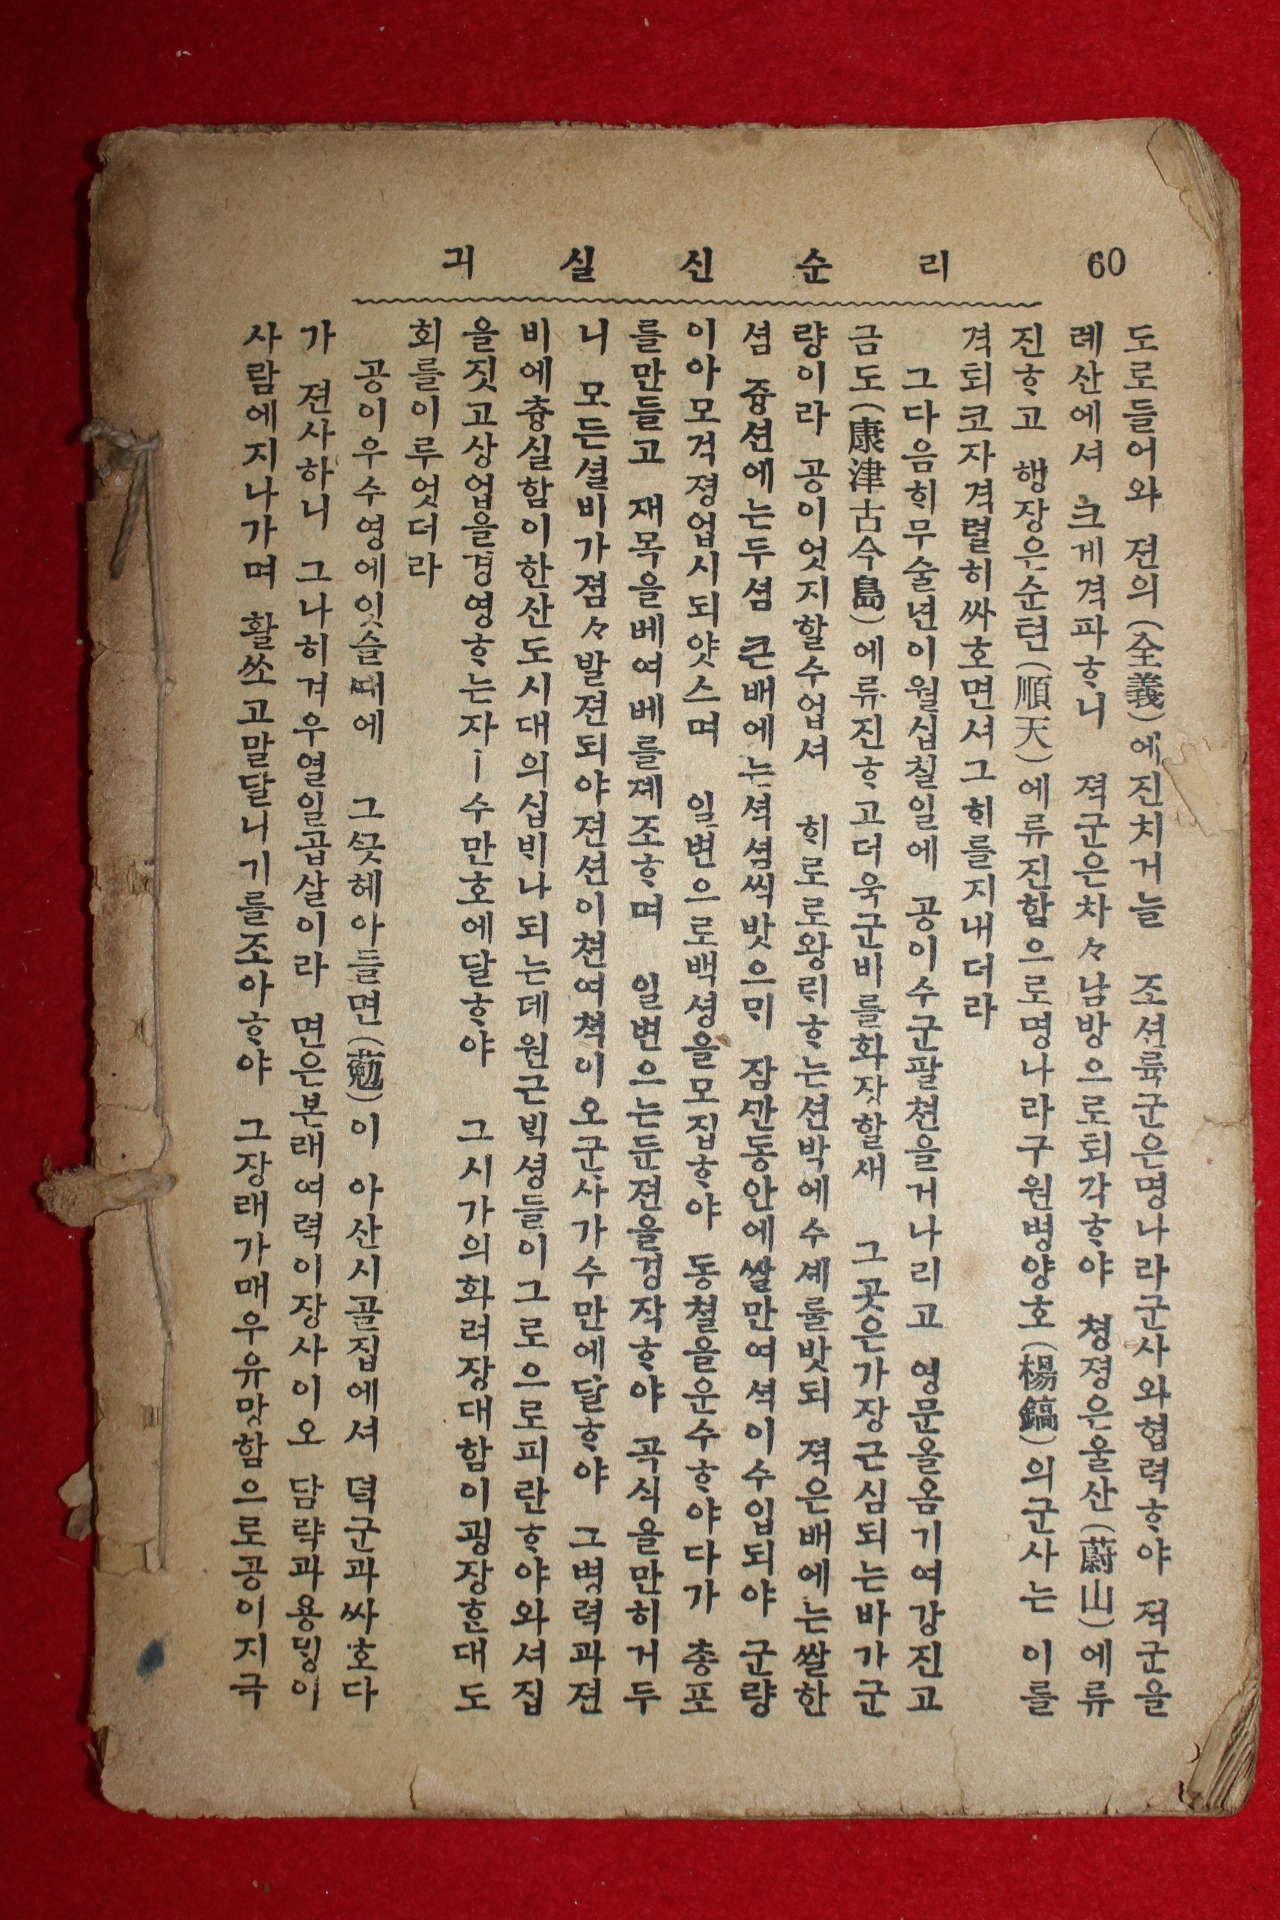 60 리순신실긔
도로들어와 젼의(全義)에진치거늘 조션륙군은명나라군사와협력ᄒᆞ야 적군을
례산에셔 크게격파ᄒᆞ니 젹군은차々남방으로퇴각ᄒᆞ야 쳥졍은울산(蔚山)에류
진ᄒᆞ고 행장은순텬(順天)에류진함으로명나라구원병양호(楊鎬)의군사는 이를
격퇴코자격렬히싸호면셔그ᄒᆡ를지내더라
그다음ᄒᆡ무술년이월십칠일에 공이수군팔쳔을거나리고 영문을옴기여강진고
금도(康津古今島)에류진ᄒᆞ고더욱군비를확장할새 그곳은가장근심되는바가군
량이라 공이엇지할수업셔 ᄒᆡ로로왕ᄅᆡᄒᆞ는션박에수셰를밧되 젹은배에는쌀한
셤 즁션에는두셤 큰배에는셕셤씩밧으ᄆᆡ 잠ᄭᅡᆫ동안에쌀만여셕이수입되야 군량
이아모걱졍업시되얏스며 일변으로백셩을모집ᄒᆞ야 동쳘을운수ᄒᆞ야다가 총포
를만들고 재목을베여배를졔조ᄒᆞ며 일변으는둔젼을경작ᄒᆞ야 곡식을만히거두
니 모든셜비가졈々발젼되야젼션이쳔여쳑이오군사가수만에달ᄒᆞ야 그병력과젼
비에츙실함이한산도시대의십ᄇᆡ나되는데원근ᄇᆡᆨ셩들이그로으로피란ᄒᆞ야와셔집
을짓고상업을경영ᄒᆞ는자ㅣ수만호에달ᄒᆞ야 그시가의화려장대함이굉장ᄒᆞᆫ대도
회를이루엇더라
공이우수영에잇슬ᄯᅢ에 그ᄭᅳᆺ헤아들면(葂)이 아산시골집에셔 뎍군과싸호다
가 젼사하니 그나히겨우열일곱살이라 면은본래여력이장사이오 담략과용ᄆᆡᆼ이
사람에지나가며 활쏘고말달니기를조아ᄒᆞ야 그장래가매우유망함으로공이지극